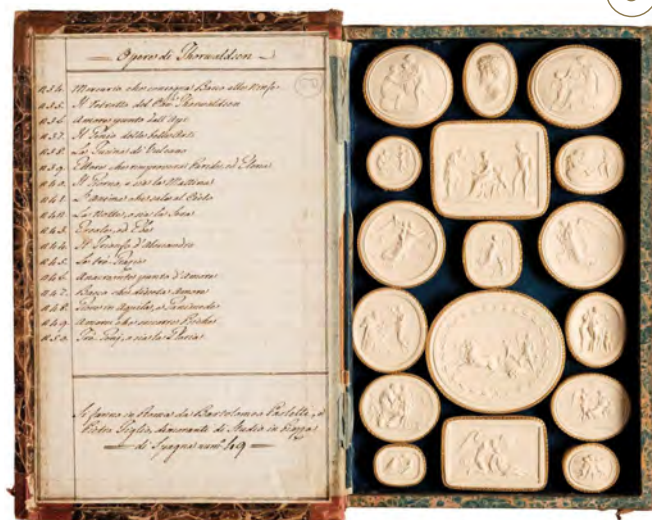 Opere di Thorwaldson
No. 34. Mercurio che consegna Bacco alle Ninfe
35. Il Ritratto del Thorwaldson
36. Amore punto dall' Ape
37. Il Genio delle belle Arti
38. La Fucina di Vulcano
39. Ettore che rimprovera Paride, ed Elena
40. Il Giorno, o sia la Mattina
41. L'Anima che vola al Cielo
42. La Notte, o sia la Sera
43. Ercole, ed Ebe
44. Il Trionfo d'Alessandro
45. Le tre Grazie
46. Anacreonte punto d'Amore
47. Bacco che disseta Amore
48. Giove in Aquila, e Ganimede
49. Amore che
50. Tre o sia la
Si fanno in Roma da Bartolomeo Paoletti, e
Pietro Figlio, di Studio in Piazza
di Spagna num. 49